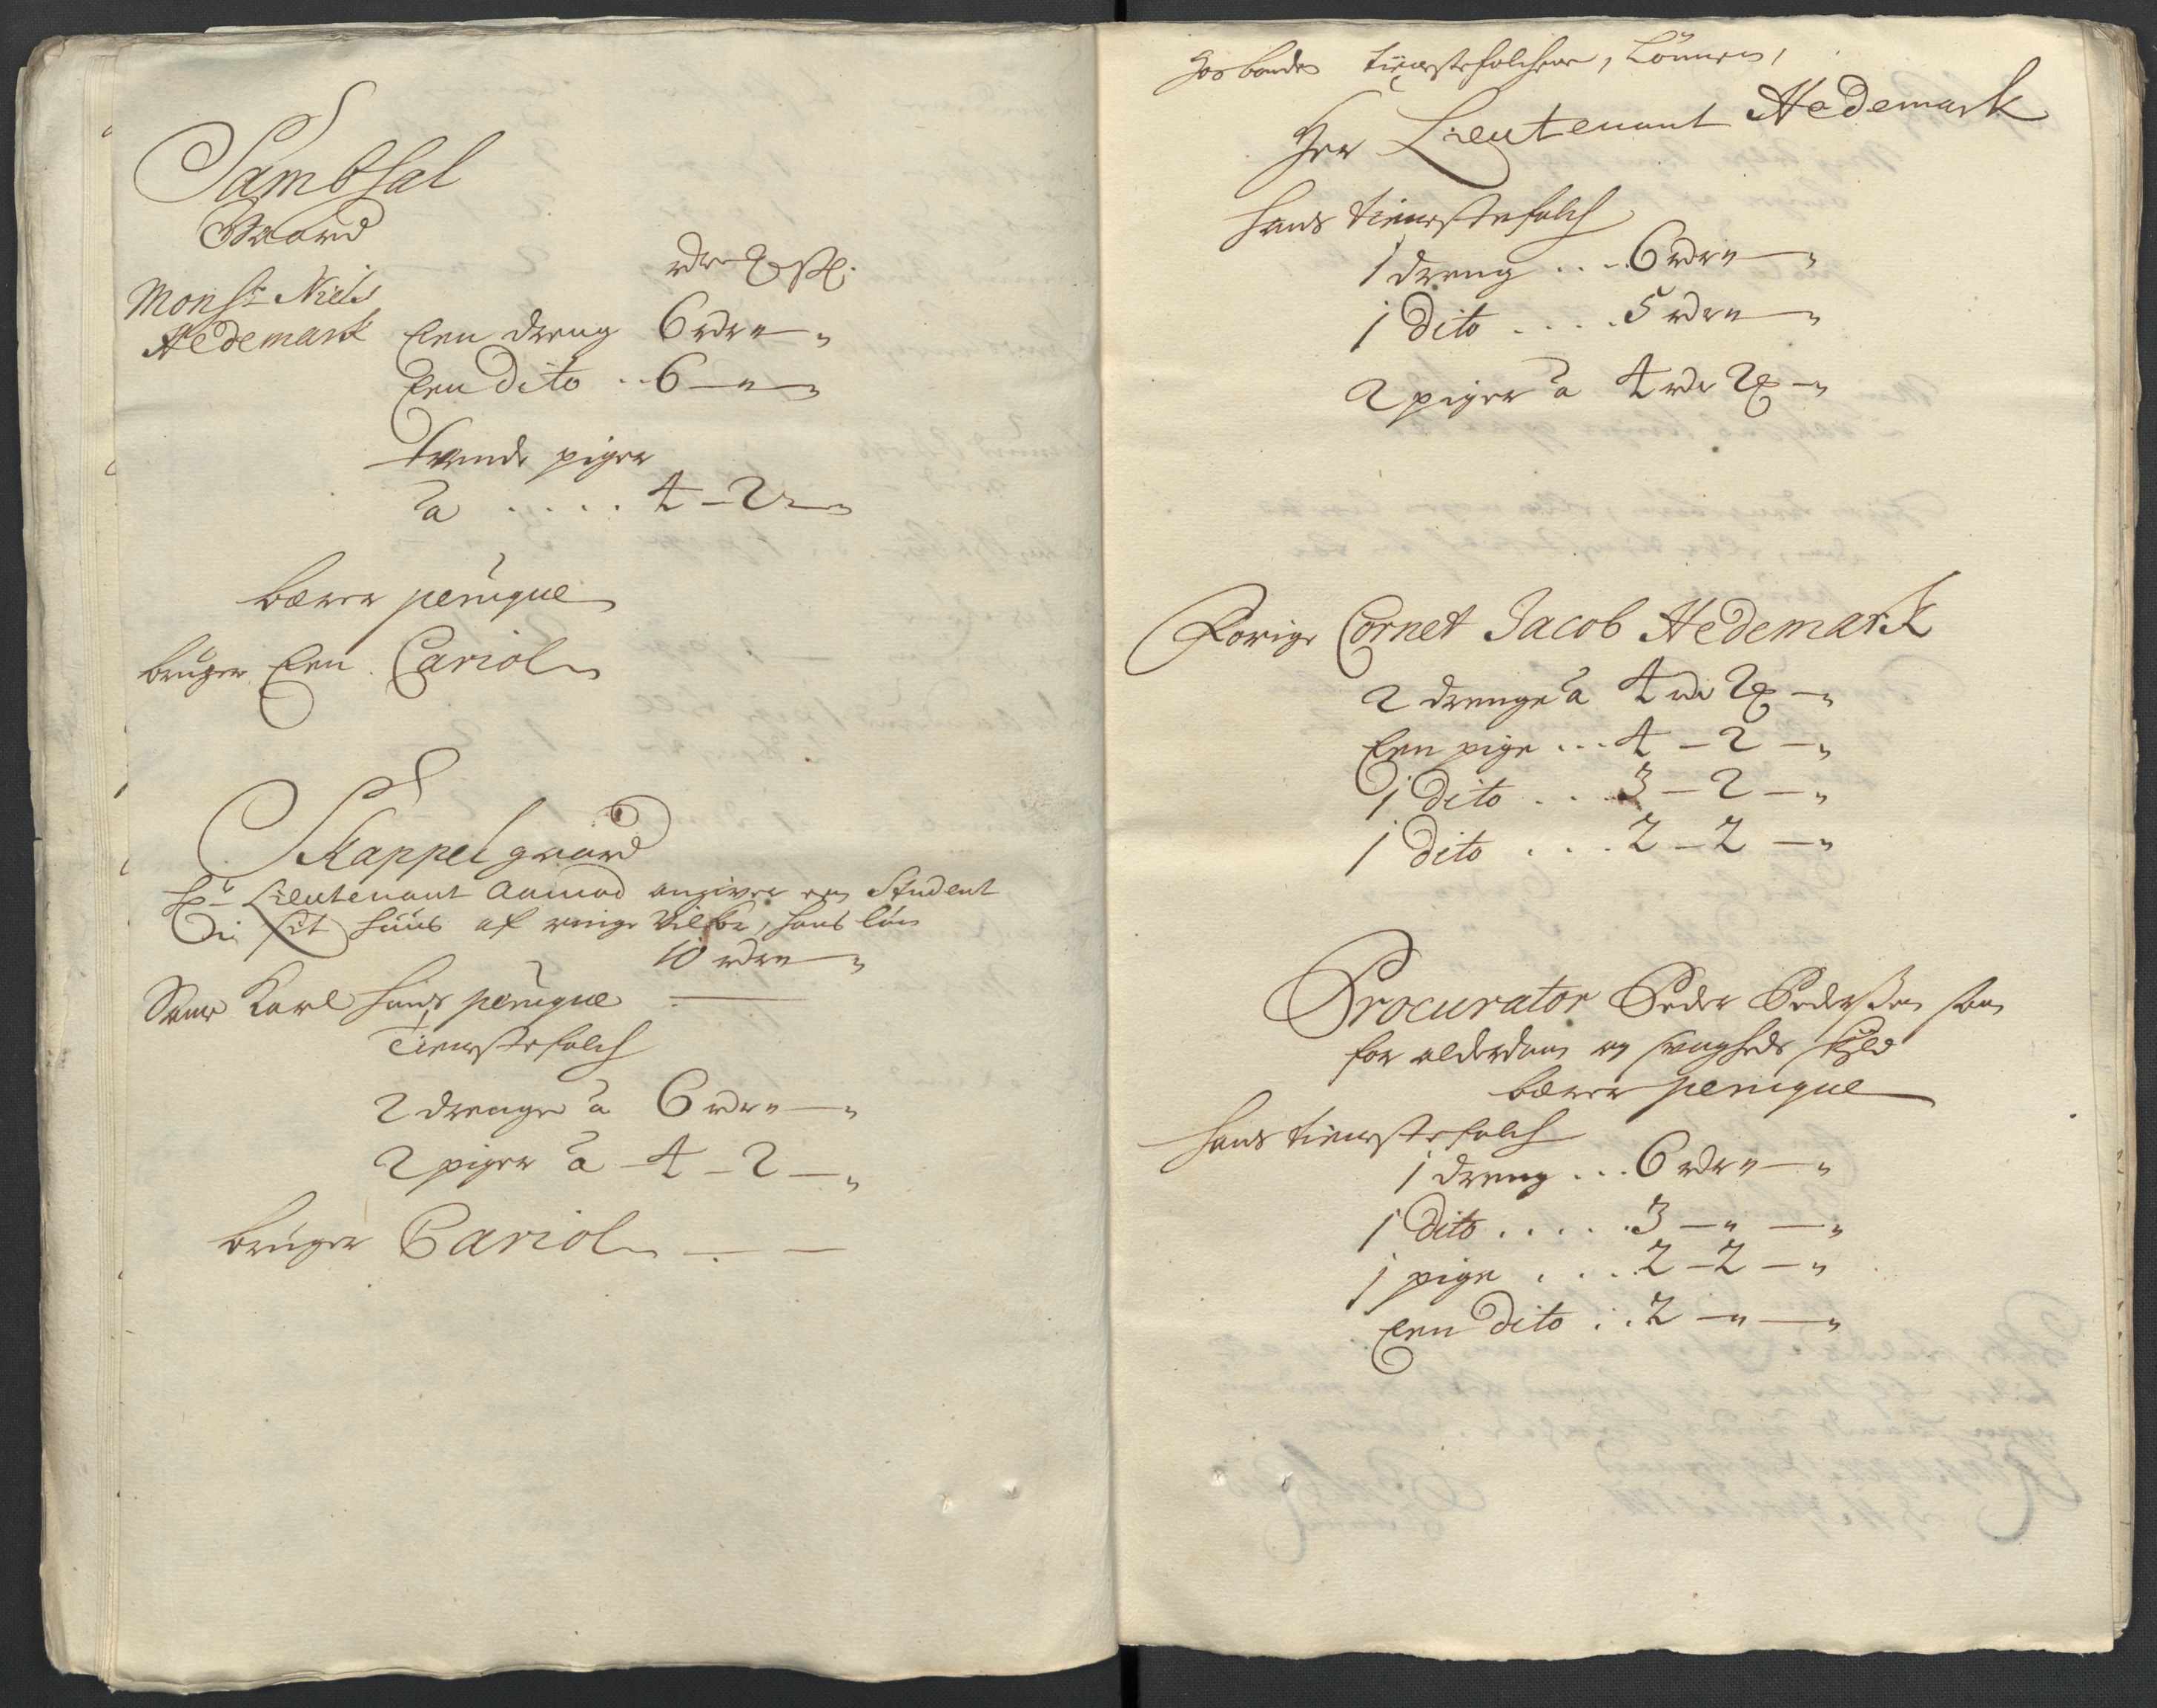 Sambsal
Gaard
rdr ß
Mons:r Niels
Hedemark Een dreng 6 rdr " — "
Een Dito .. 6 — " — "
tvende piger
a ..... 4 — 2 — "
bærer peruque
bruger Een Cariol
Skappelgaard
Hr Lieutenant Aamod angiver en Student
i sit huus af ringe Vilkor, hans løn
10 rdr " — "
Karl hans peruque
Tienistefolch
2 drenge a 6 rdr " — "
2 piger a 4 — 2 — "
bruger Cariol
Hosbondes tienistefolchene, Lønnen,
Her Lieutenant Hedemark
hans tienistefolch
1 dreng ... 6 rdr " — "
1 Dito .... 5 rdr " — "
2 piger a 4 rdr 2 — "
Forige Cornet Jacob Hedemark
2 drenge a 4 rdr 2 — "
Een pige ... 4 — 2 — "
1 Dito ... 3 — 2 — "
1 Dito ... 2 — 2 — "
Procurator Peder Pedersen som
for alderdom og svagheds skyld
bærer peruque
hans tienistefolch
1 dreng ... 6 rdr " — "
1 Dito ..... 3 — " — "
1 pige ... 2 — 2 — "
Een Dito .. 2 — " — "